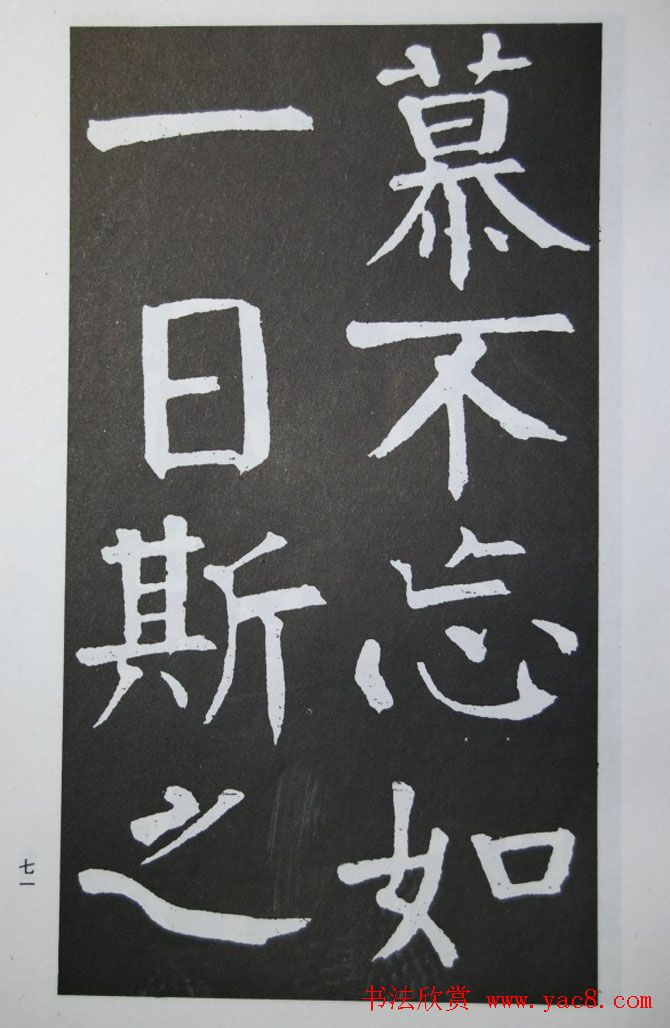 慕不忘如
一日斯之
七一
书法欣赏 www.yac8.com